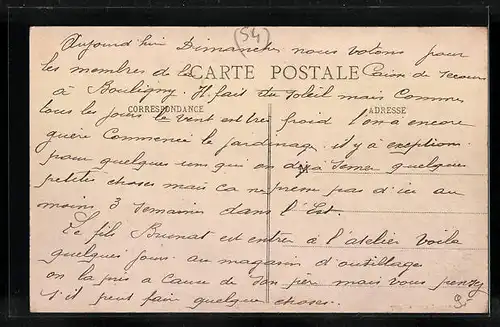 (54)
Aujourd'hui Dimanche nous votons pour
les membres de la Caisse de Secours
CARTE POSTALE
à Bouligny. Il fait du Soleil mais Comme
CORRESPONDANCE ADRESSE
tous les jours le vent est très froid l'on a encore
guère Commencé le jardinage il y a exception
pour quelques uns qui on déjà Semer quelques
petites choses mais ca ne presse pas d'ici au
moins 3 Semaines dans l'Est.
Le fils Brunat est entrer à l'atelier Voila
quelques jours au magasin d'outillage
on la pris a Cause de Son père mais vous pensez
S'il peut fair quelque choses.